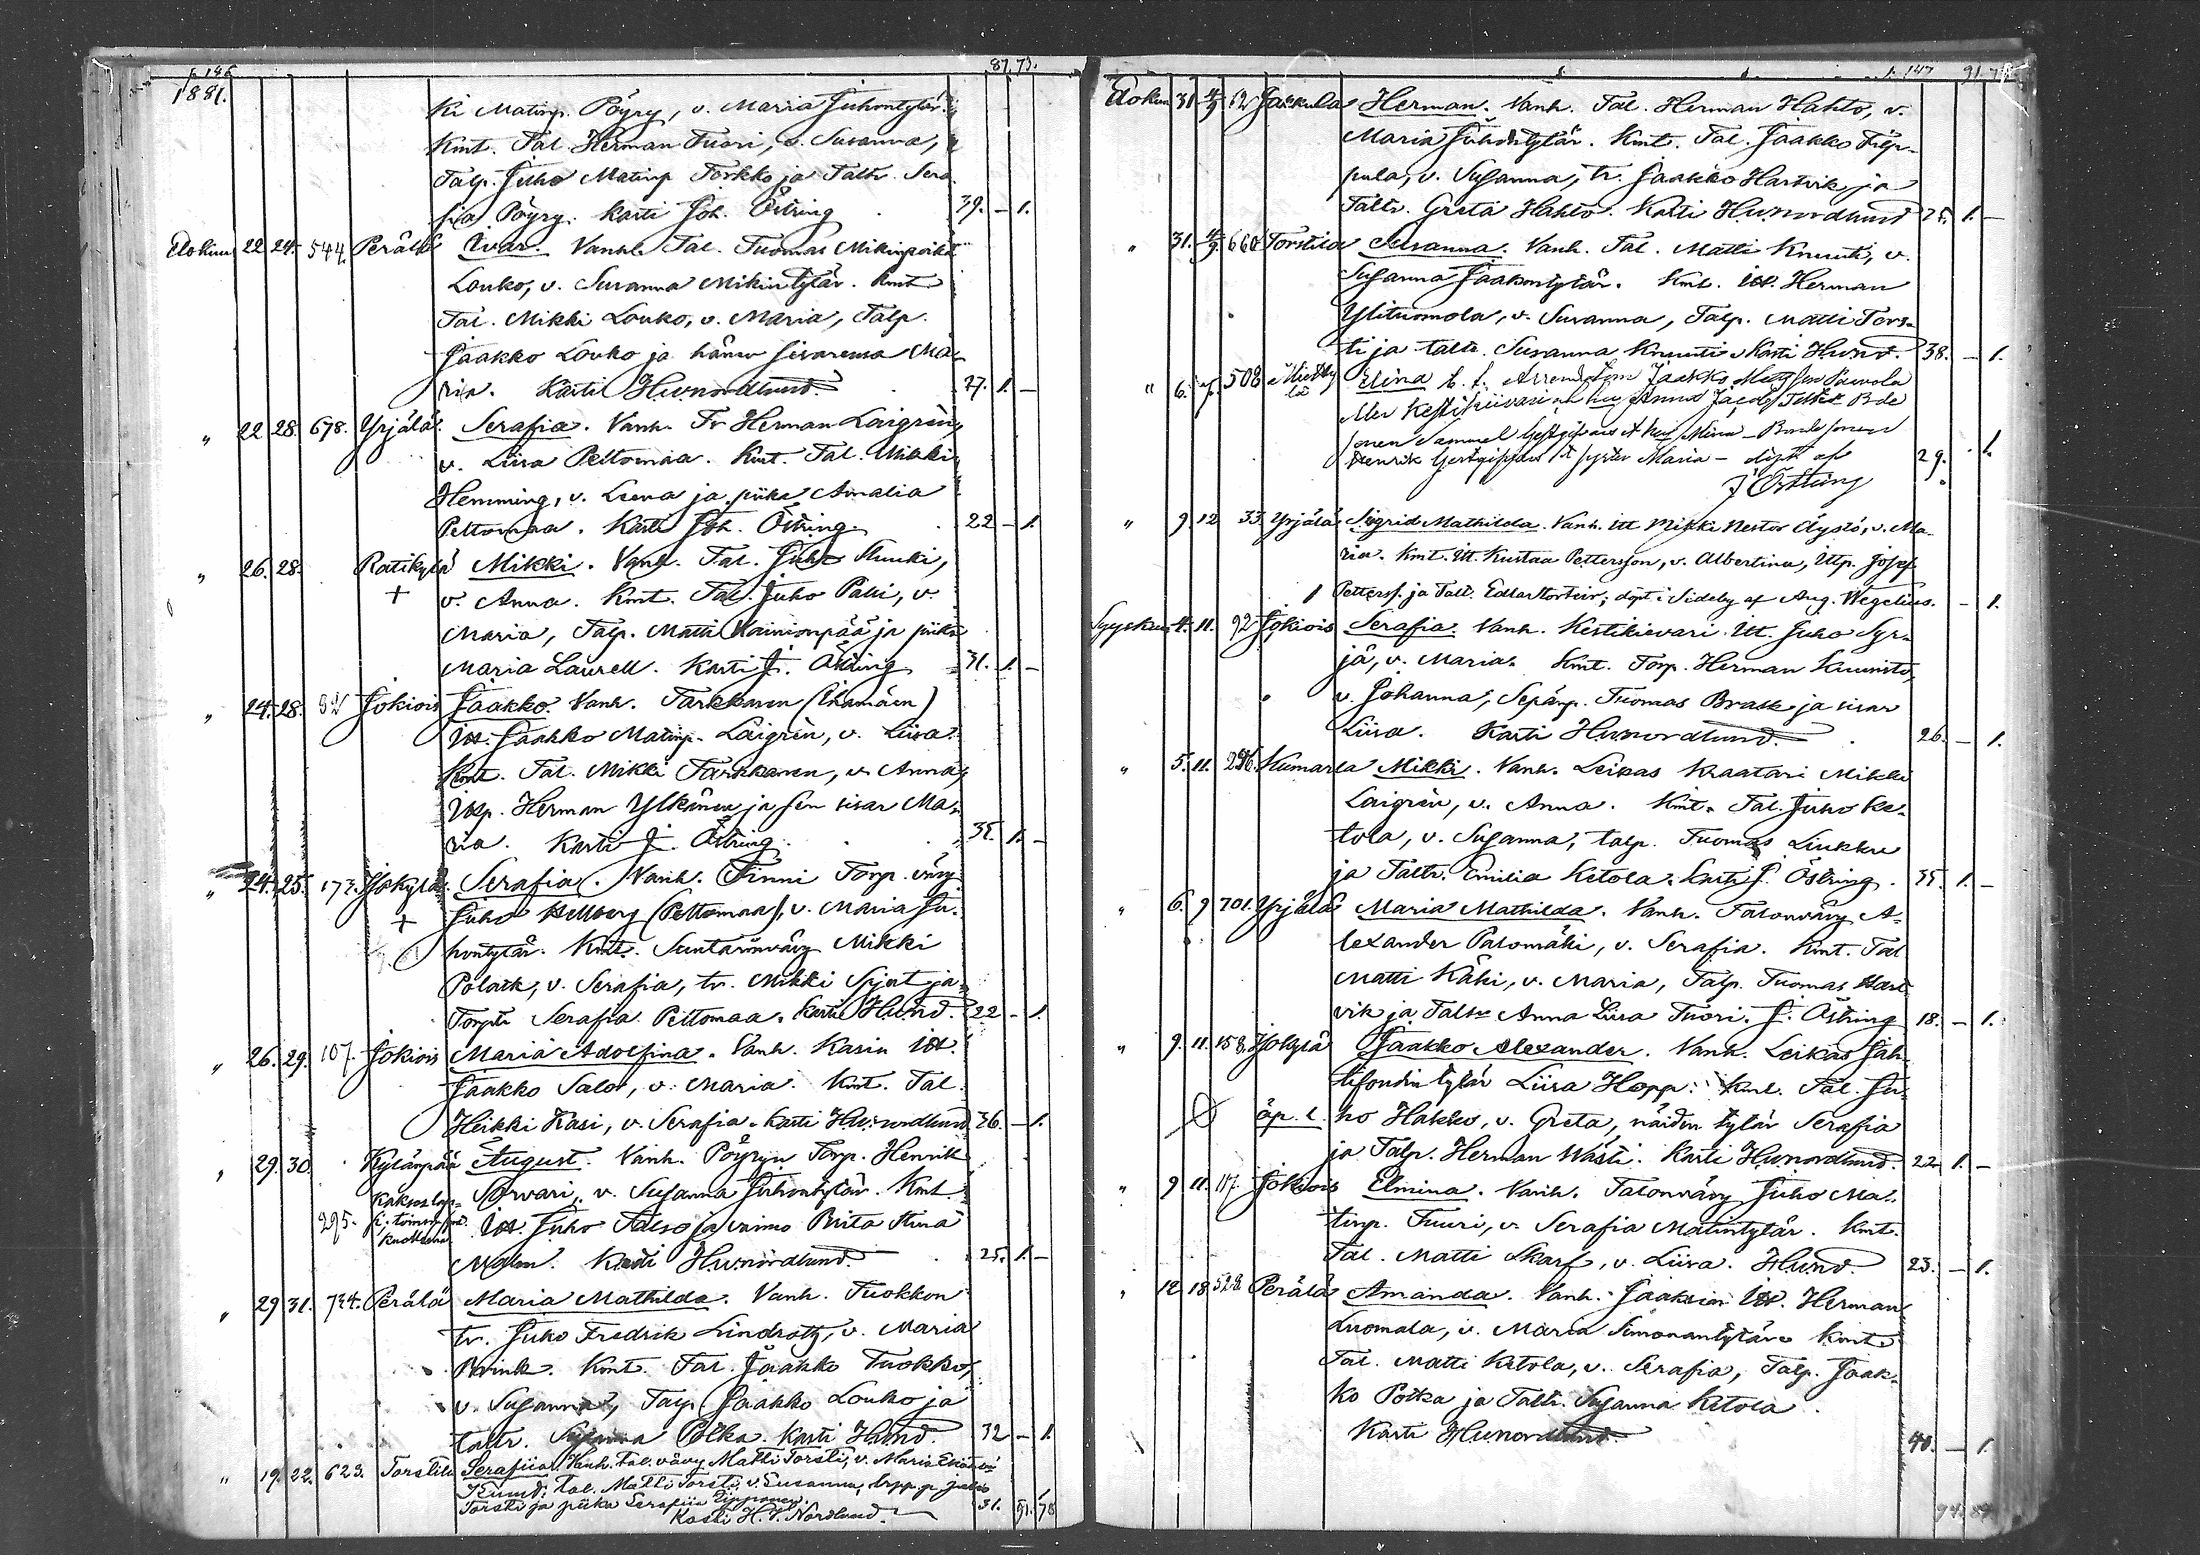 p. 146 87. 73.
1881.
ki Matinp. Pöyry, v. Maria Juhontytär.
Kmt. Tal. Herman Tuori, v. Susanna,
Talp. Juho Matinp. Torkko ja Taltr. Sera
fia Pöyry. Kasti Joh. Östring 39. – 1.
Elokuu 22 24. 544. Perälä Ivar. Vanh. Tal. Tuomas Mikinpoika
Louko, v. Susanna Mikintytär. Kmt
Tal. Mikki Louko, v. Maria, Talp.
Jaakko Louko ja hänen sisarensa Ma-
ria. Kasti H.W.Nordlund. 27. 1. –
" 22 28. 678. Yrjälä Serafia. Vanh. Tr. Herman Laigrén,
v. Liisa Peltomaa. Kmt. Tal. Mikki
Hemming, v. Leena ja piika Amalia
Peltomaa. Kasti Joh. Östring. 22 – 1.
" 26. 28. Ratikylä Mikki. Vanh. Tal. Juho Kuuki,
+ v. Anna. Kmt. Tal. Juho Paki, v.
Maria, Talp. Matti Wainionpää ja piika
Maria Laurell. Kasti J. Östring 31. 1. –
" 24. 28. 92 Jokiois Jaakko. Vanh. Tarkkanen (Ihamäen)
Itt. Jaakko Matinp. Laigrén, v. Liisa.
Kmt. Tal. Mikki Tarkkanen, v. Anna,
Itsp. Herman Ylkänen ja sen sisar Ma-
ria. Kasti J. Östring. 35. 1. –
" 24. 25. 173. Yokylä Serafia. Vanh. Finni Torp. vävy
+ Juho Hellberg (Peltomaa), v. Maria Ju-
hontytär. Kmt. Suntarinvävy Mikki
Polark, v. Serafia, tr. Mikki Spjut ja
Torptr. Serafia Peltomaa. Kasti H.W.Nd. 22 – 1.
" 26. 29. 107. Jokiois Maria Adolfina. Vanh. Kasin Itt.
Jaakko Salo, v. Maria. Kmt. Tal.
Heikki Kasi, v. Serafia. Kasti H.W.Nordlund 36. – 1.
" 29. 30. Kylänpää August. Vanh. Pöyryn Torp. Henrik
Sorvari, v. Susanna Juhontytär. Kmt.
295. Itt. Juho Talso ja vaimo Brita Stina
Malm. Kasti H.W.Nordlund. 25. 1. –
" 29 31. 724. Perälä Maria Mathilda. Vanh. Tuokkon
tr. Juho Fredrik Lindroth, v. Maria
Brink. Kmt. Tal. Jaakko Tuokko,
v. Susanna, Talp. Jaakko Louko ja
taltr. Susanna Polka. Kasti H.W.Nd. 32 – 1.
" 19. 22. 623. Torstila Serafiia. Vanh. tal. vävy Matti Torsti, v. Maria
Kumd. tal. Matti Torsti, v. Susanna,
Torsti ja piika Serafiia 31. 91. 78
Kasti H.V. Nordlund.
p. 147 91. 78
Elokuu 31 4/9 62 Jakkula Herman. Vanh. Tal. Herman Hahto, v.
Maria Juhontytär. Kmt. Tal. Jaakko Filp-
pula, v. Susanna, Tr. Jaakko Hartvik ja
Taltr. Greta Hahto. Kasti H.W.Nordlund 25. 1. –
" 31. 4/9 660 Torstila Susanna. Vanh. Tal. Matti Knuuti, v.
Susanna Jaakontytär. Kmt. Itt. Herman
Ylituomola, v. Susanna, Talp. Matti Tors-
ti ja taltr. Susanna Knuuti. Kasti H.W.Nd. 38. – 1.
" 6. 508 Elina Jaakko Matsson Paavola
Anna Jacobs
Samuel Mina – Bonde sonen
Henrik syster Maria – döpt af 29. . 1.
J. Östring
" 9 12 33 Yrjälä Sigrid Mathilda. Vanh. Itt. Mikki Nestor Äystö, v. Ma-
ria. Kmt. Itt. Kustaa Pettersson, v. Albertina, Itsp. Josef
Petterss. ja Taltr. Edla; döpt i Sideby af Aug. Wegelius. – 1.
Syysku 4. 11. 92 Jokiois Serafia. Vanh. Kestikievari Itt. Juho Syr-
jä, v. Maria. Kmt. Torp. Herman Kuunisto,
v. Johanna, Sepänp. Tuomas Brask ja sisar
Liisa. Kasti H.W.Nordlund. 26. – 1.
" 5. 11. 296. Kumarla Mikki. Vanh. Leikas Kraatari Mikki
Laigrén, v. Anna. Kmt. Tal. Juho Ke-
tola, v. Susanna, talp. Tuomas Liukku
ja Taltr. Emilia Ketola. Kasti J. Östring. 35. 1. –
" 6. 9 701. Yrjälä Maria Mathilda. Vanh. Talonvävy A-
lexander Palomäki, v. Serafia. Kmt. Tal
Matti Käki, v. Maria, Talp. Tuomas Hart
vik ja Taltr. Anna Liisa Tuori. J. Östring 18. – 1.
" 9. 11. 158. Yokylä Jaakko Alexander. Vanh. Leikas Jah-
tifoudin tytär Liisa Hopp. Kmt. Tal. Ju-
äp. l. ho Hakko, v. Greta, näiden tytär Serafia
ja Talp. Herman Wästi. Kasti H.W.Nordlund. 22 1. –
" 9 11. 117. Jokiois Elmina. Vanh. Talonvävy Juho Ma-
tinp. Tuuri, v. Serafia Matintytär. Kmt.
Tal. Matti Skarf, v. Liisa. H.W.Nd. 23. – 1.
" 12 18 528. Perälä Amanda. Vanh. Jaaksin Itt. Herman
Luomala, v. Maria Simonantytär. Kmt.
Tal. Matti Ketola, v. Serafia, Talp. Jaak-
ko Polka ja Taltr. Susanna Ketola.
Kasti H.W.Nordlund. 40. – 1.
94. 87